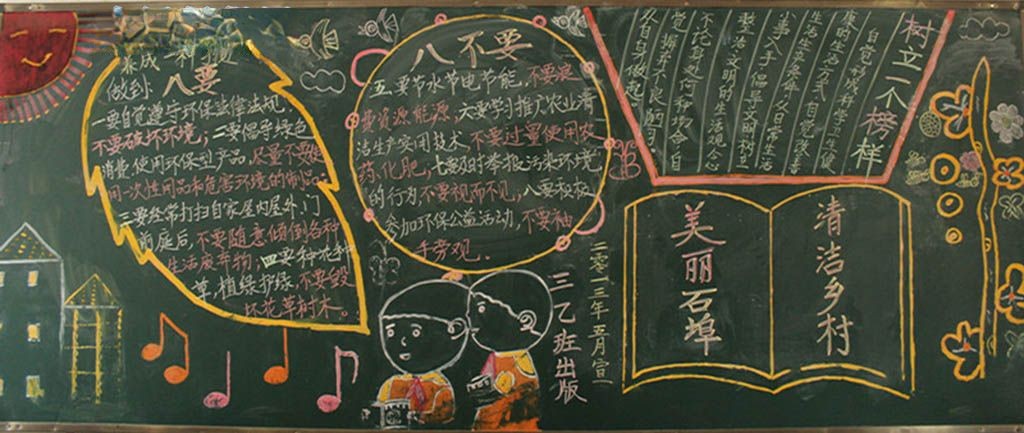 养成一种
做到:八要
一要自觉遵守环保法律法规,
不要破坏环境;二要倡导绿色
消费,使用环保型产品,尽量不要使
用一次性用品和危害环境的制品。
三要经常打扫自家屋内屋外、门
前庭后,不要随意倾倒各种
生活废弃物;四要种花种
草,植绿护绿,不要毁
坏花草树木。
八不要
五要节水节电节能,不要浪
费资源能源,六要学习推广农业清
洁生产实用技术,不要过量使用农
药、化肥,七要及时举报污染环境
的行为,不要视而不见,八要积极
参加环保公益活动,不要袖
手旁观。
树立一个榜样
自觉形成科学卫生健
康的生活方式,自觉改善
生活要素,从日常生活
小事入手,倡导文明树立
新生活文明的生活观念
不论身处何种场合自
觉摒弃不良陋习,
从自身做起
清洁乡村
美丽石埠
二零一三年五月宣
三乙班出版